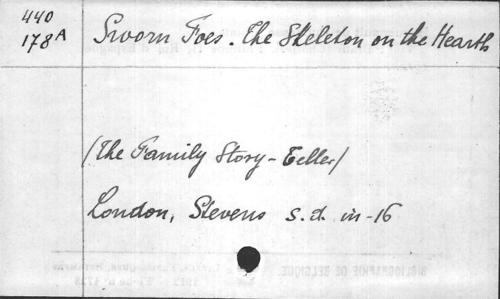 440
178 A
Sworn Foes. The Skeleton on the Hearth
(The Family Story-Teller)
London, Stevens s.d. in-16
BIBLIOGRAPHIE DE BELGIQUE